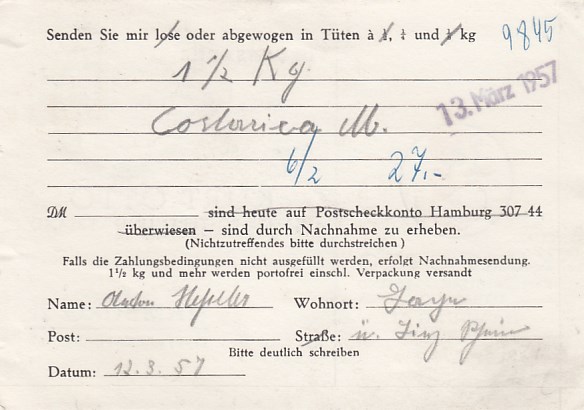 Senden Sie mir lose oder abgewogen in Tüten à ½, ¼ und ⅛ kg
9845
1 ½ Kg.
13. März 1957
Costarica M.
6/2 27,-
DM sind heute auf Postscheckkonto Hamburg 307 44
überwiesen – sind durch Nachnahme zu erheben.
(Nichtzutreffendes bitte durchstreichen)
Falls die Zahlungsbedingungen nicht ausgefüllt werden, erfolgt Nachnahmesendung.
1½ kg und mehr werden portofrei einschl. Verpackung versandt
Name: Wohnort:
Post: Straße: ü. Linz Rhein
Bitte deutlich schreiben
Datum: 12.3.57